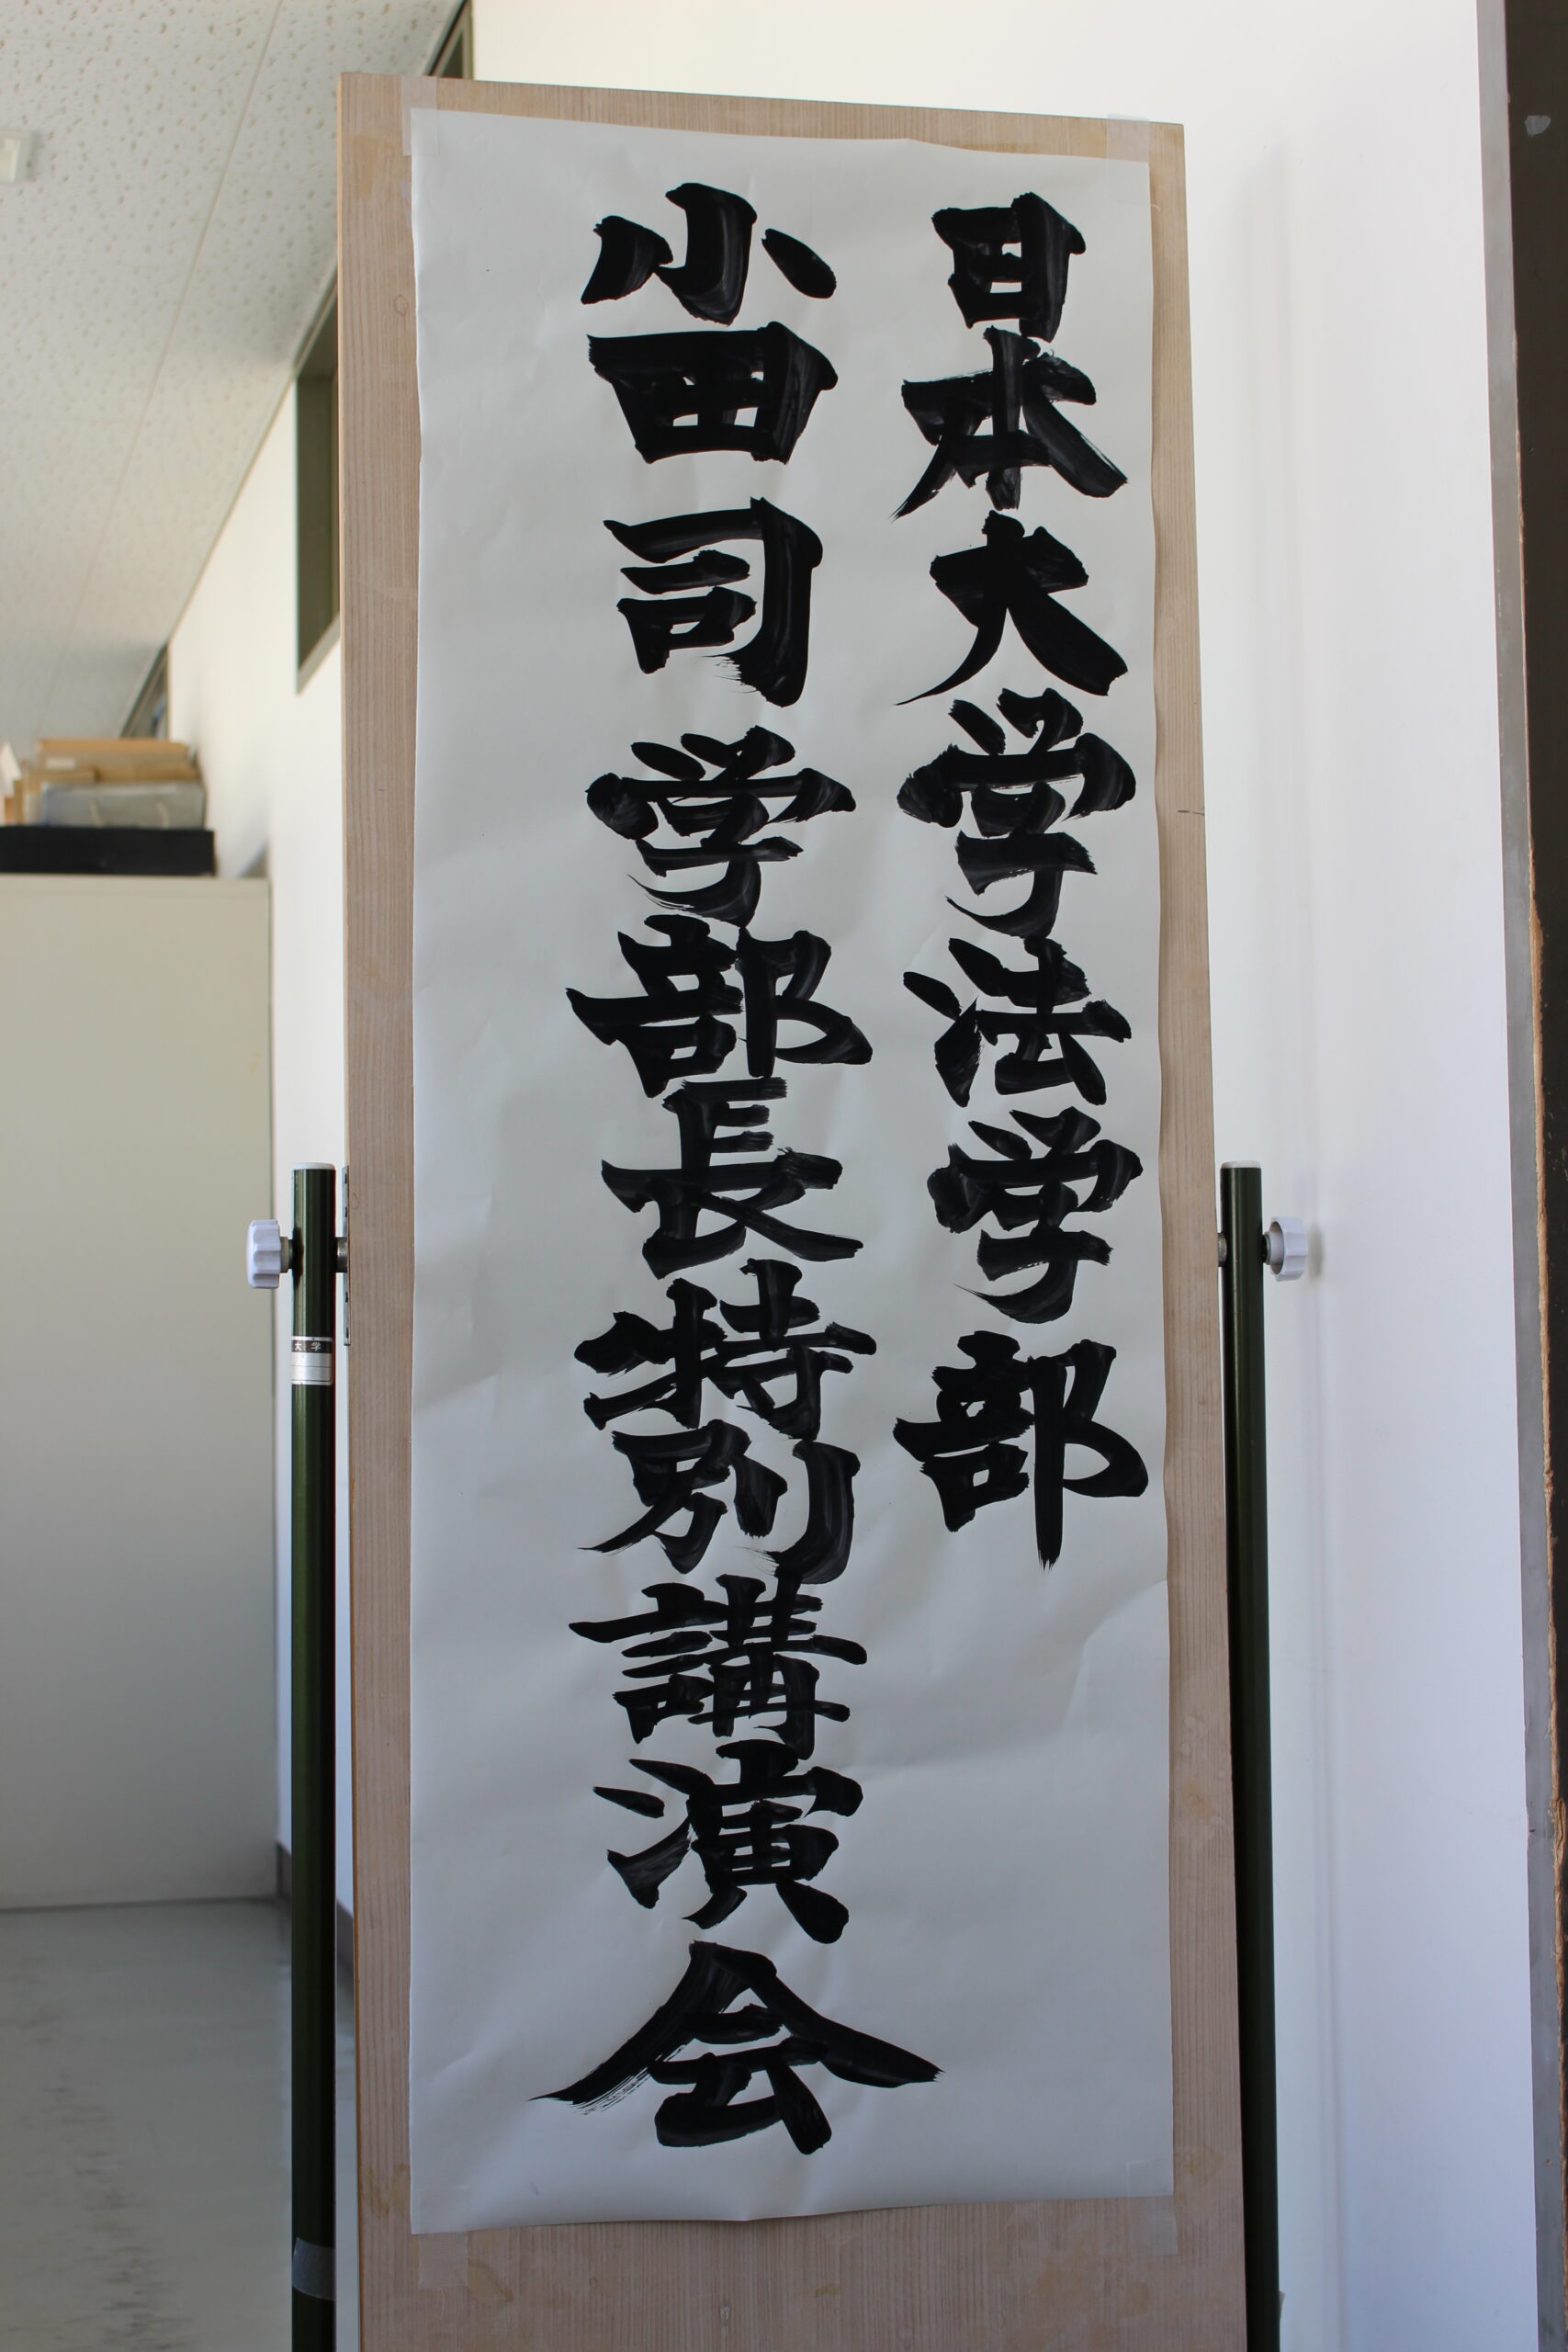 日本大学法学部
小田司学部長特別講演会
大学